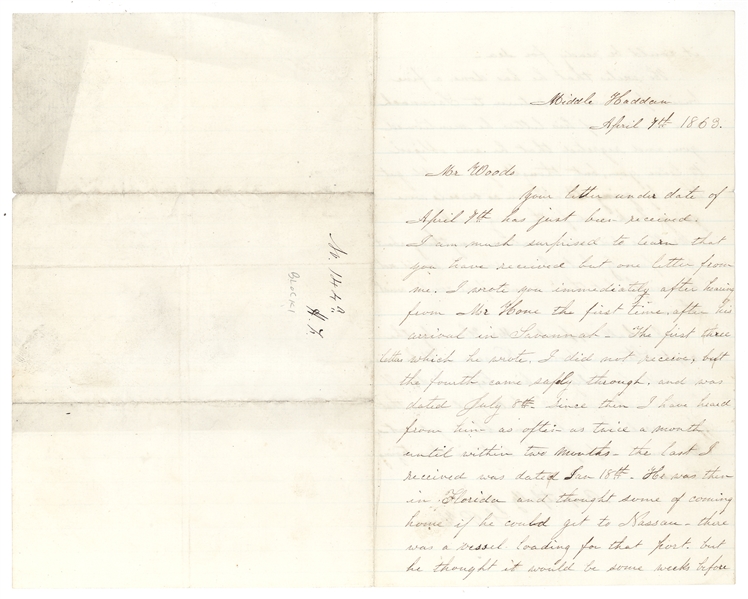 No. 144a
H. L
BLOCK 1
Middle Haddam
April 9th 1863.
Mr Woods
Your letter under date of
April 7th has just been received.
I am much surprised to learn that
you have received but one letter from
me. I wrote you immediately after hearing
from Mr Hone the first time, after his
arrival in Savannah - The first three
letters which he wrote, I did not receive, but
the fourth came safly through, and was
dated July 8th. Since then I have heard
from him as often as twice a month
until within two months - the last I
received was dated Jan 18th - He was then
in Florida and thought some of coming
home if he could get to Nassau - there
was a vessel loading for that port. but
he thought it would be some weeks before